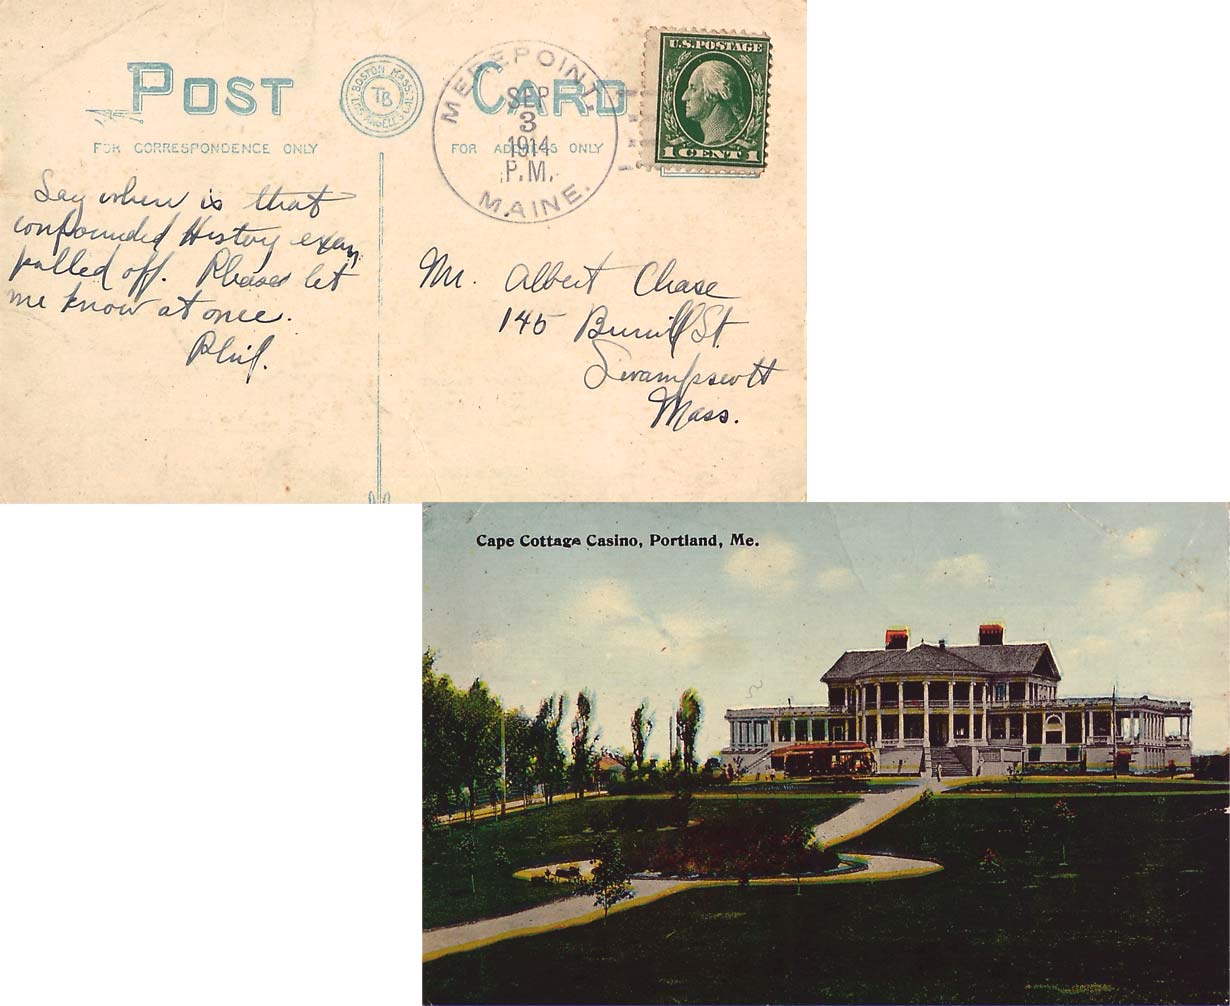 POST CARD
BOSTON MASS.
TB
LOS ANGELES CAL.
MEREPOINT.
SEP
3
1914
P.M.
MAINE.
U.S. POSTAGE
1 CENT 1
FOR CORRESPONDENCE ONLY
FOR ADDRESS ONLY
Say where is that
confounded History exam
pulled off. Please let
me know at once.
Phil.
Mr. Albert Chase
145 Burrill St.
Swampscott
Mass.
Cape Cottage Casino, Portland, Me.